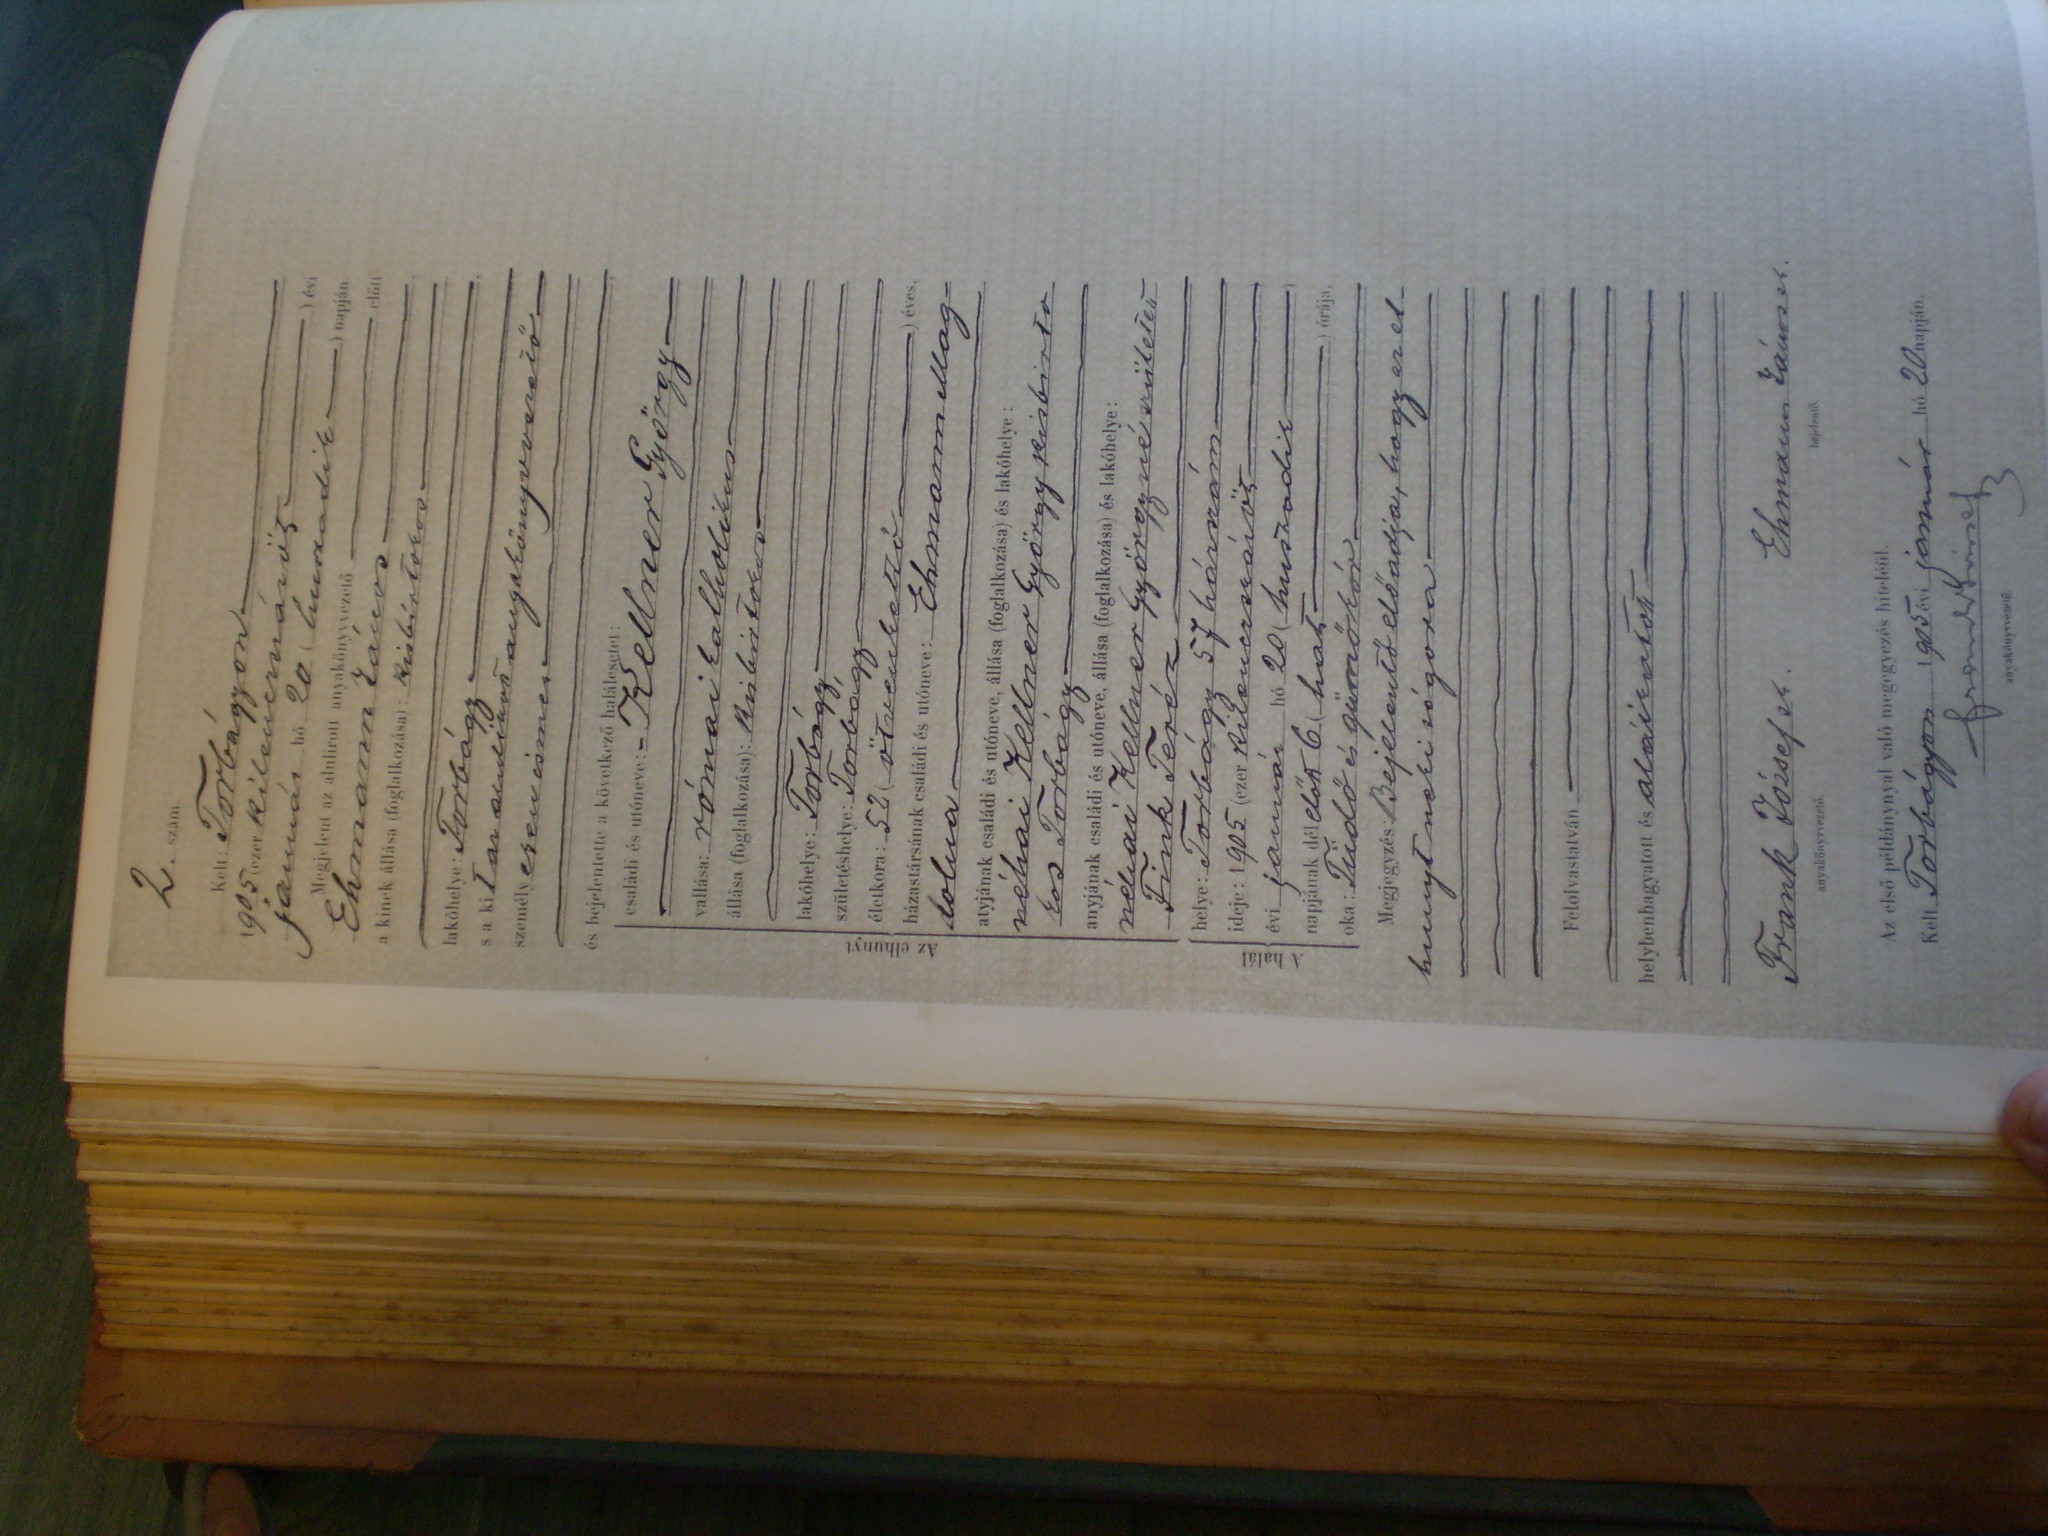 2. szám
Kelt: Torbágyon
1905 (ezer kilencszázöt) évi
január hó 20 (huszadik) napján
Megjelent az alulirott anyakönyvvezető előtt
Ehmann János
a kinek állása (foglalkozása): kisbirtokos
lakóhelye: Torbágy
s a kit az alulirott anyakönyvvezető
személyesen ismer
és bejelentette a következő halálesetet:
Az elhunyt
családi és utóneve: Kellner György
vallása: római katholikus
állása (foglalkozása): kisbirtokos
lakóhelye: Torbágy
születéshelye: Torbágy
életkora: 52 (ötvenkettő) éves,
házastársának családi és utóneve: Ehmann Mag-
dolna
atyjának családi és utóneve, állása (foglalkozása) és lakóhelye:
néhai Kellner György kisbirto
kos Torbágy
anyjának családi és utóneve, állása (foglalkozása) és lakóhelye:
néhai Kellner Györgyné született
Fink Teréz
A halál
helye: Torbágy 57 házszám
ideje: 1905 (ezer kilencszázöt)
évi január hó 20 (huszadik)
napjának dél előtt 6 (hat) órája.
oka: Tüdő és gümőkór
Megjegyzés: Bejelentő előadja, hogy az el
hunyt neki sógora
Felolvastatván
helybenhagyatott és aláíratott
Frank József sk.
Ehmann János sk.
anyakönyvvezető.
bejelentő.
Az első példánynyal való megegyezés hiteléül.
Kelt Torbágyon 1905 évi január hó 20 napján.
Frank József
anyakönyvvezető.